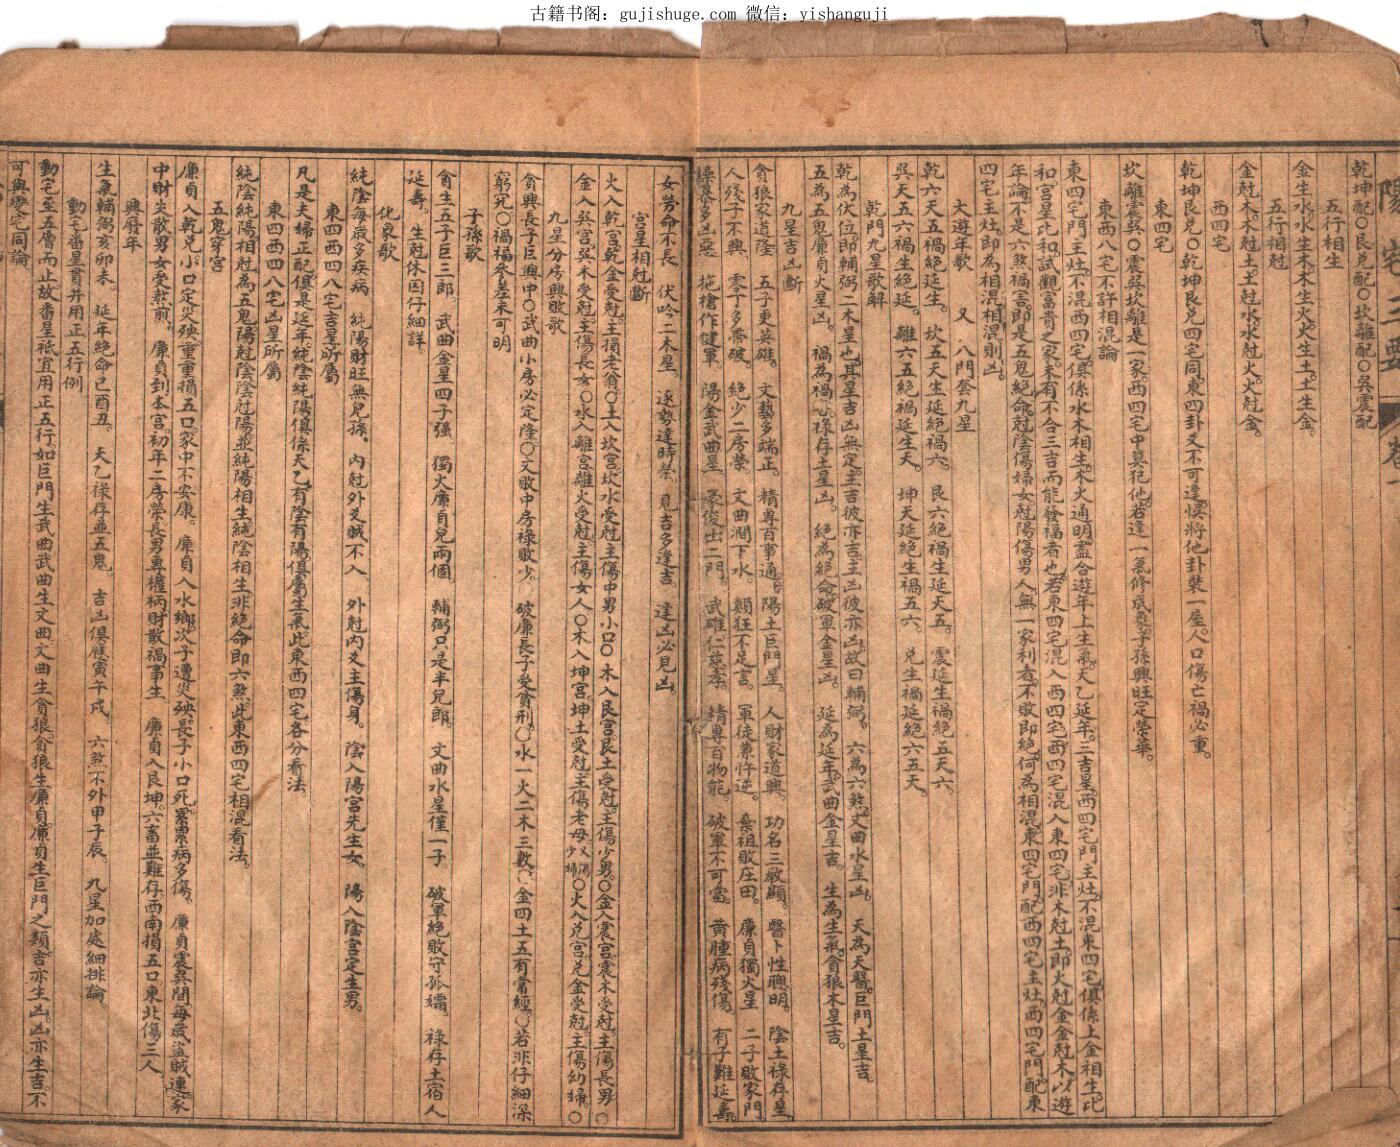 古籍书阁：gujishuge.com 微信：yishanguji
乾坤配〇艮兑配〇坎離配〇巽震配
五行相生
金生水。水生木。木生火。火生土。土生金。
五行相尅
金尅木。木尅土。土尅水。水尅火。火尅金。
西四宅
乾坤艮兑〇乾坤艮兑四宅同。東四卦爻不可逢。悞將他卦裝一屋。人口傷亡禍必重。
東四宅
坎離震巽〇震巽坎離是一家。西四宅中莫犯他。若逢一氣修成象。子孫興旺定榮華。
東西八宅不許相混論
東四宅門主灶。不混西四宅。俱係水木相生。木火通明。蓋合遊年上生氣。天乙延年。三吉星。西四宅門主灶。不混東四宅。俱係土金相生。比
和。宮星比和。試觀富貴之家。未有不合三吉而能發福者也。若東四宅混入西四宅。西四宅混入東四宅。非木尅土。即火尅金。金尅木。以遊
年論。不是六煞禍害。即是五鬼絕命。尅陰傷婦女。尅陽傷男人。無一家利者。不敗即絕。何為相混。東四宅門。配西四宅主灶。西四宅門。配東
四宅主灶。即為相混。相混則凶。
大遊年歌　又　八門套九星
乾六天五禍絕延生。　坎五天生延絕禍六。　艮六絕禍生延天五。　震延生禍絕五天六。
巽天五六禍生絕延。　離六五絕禍延生天。　坤天延絕生禍五六。　兑生禍延絕六五天。
乾門九星歌解
乾為伏位。即輔弼二木星也。其星吉凶無定。主吉彼亦吉。主凶彼亦凶。故曰輔弼。　六為六煞。文曲水星凶。　天為天醫。巨門土星吉。
五為五鬼。廉貞火星凶。　禍為禍害。祿存土星凶。　絕為絕命。破軍金星凶。　延為延年。武曲金星吉。　生為生氣。貪狼木星吉。
九星吉凶斷
貪狼家道隆　五子更英雄。　文藝多端正。　精專百事通。　陽土巨門星。　人財家道興。　功名三敢顯。　醫卜性聰明。　陰土祿存星。
人殘子不興。　零丁多帶破。　絕少二房榮。　文曲潤下水。　顛狂不足言。　軍徒兼忤逆。　棄祖敗庄田。　廉貞獨火星　二子敗家門。
躁暴多凶惡　拖槍作健軍。　陽金武曲星。　豪俊出二門。　武雄仁慈孝。　精專百物能。　破軍不可當。　黄腫病殘傷。　有子難延壽。
女勞命不長　伏吟二木星。　逐勢達時榮。　見吉多逢吉。　逢凶必見凶。
宮星相尅斷
火入乾宮。乾金受尅。主損老翁〇土入坎宮。坎水受尅。主傷中男小口〇木入艮宮。艮土受尅。主傷少男。〇金入震宮。震木受尅。主傷長男〇
金入巽宮。巽木受尅。主傷長女〇水入離宮。離火受尅。主傷女人〇木入坤宮。坤土受尅。主傷老母。又傷少婦〇火入兑宮。兑金受尅。主傷幼婦〇
九星分房興敗歌
貪興長子巨興中〇武曲小房必定隆。〇文敗中房祿敗少。　破廉長子受貧刑。〇水一火二木三數〇金四土五有當經。〇若非仔細深
窮究〇禍福參差未可明
子孫歌
貪生五子巨三郎。　武曲金星四子强。　獨火廉貞兒兩個。　輔弼只是半兒郎。　文曲水星僅一子。　破軍絕敗守孤孀。　祿存土宿人
延壽。　生尅休囚仔細詳。
化象歌
純陰每歲多疾病　純陽財旺無兒孫。　内尅外爻賊不入　外尅内爻主傷身。　陰入陽宮先生女。　陽入陰宮定生男。
東四西四八宅吉星所屬
凡是夫婦正配。俱是延年。純陰純陽。俱係天乙。有陰有陽。俱屬生氣。此東西四宅各分看法。
東四西四八宅凶星所屬
純陰純陽相尅為五鬼。陽尅陰。陰尅陽。並純陽相生。純陰相生。非絕命即六煞。此東西四宅相混看法。
五鬼穿宮
廉貞入乾兑。小口定災殃。重重損五口。家中不安康。　廉貞入水鄉。次子遭災殃。長子小口死。累累病多傷。　廉貞震巽間。每歲盜賊連。家
中財失散。男女受熬煎。　廉貞到本宮。初年二房榮。長男異權柄。財散禍事生。　廉貞入艮坤。六畜並難存。西南損五口。東北傷三人
應發年
生氣輔弼亥卯未。　延年絕命巳酉丑。　天乙祿存並五鬼。　吉凶俱應寅午戌。　六煞不外甲子辰。　九星加處細排論。
動宅番星貫井用正五行例
動宅至五層而止。故番星祇宜用正五行。如巨門生武曲。武曲生文曲。文曲生貪狼。貪狼生廉貞。廉貞生巨門之類。吉亦生凶。凶亦生吉。不
可與變宅同論